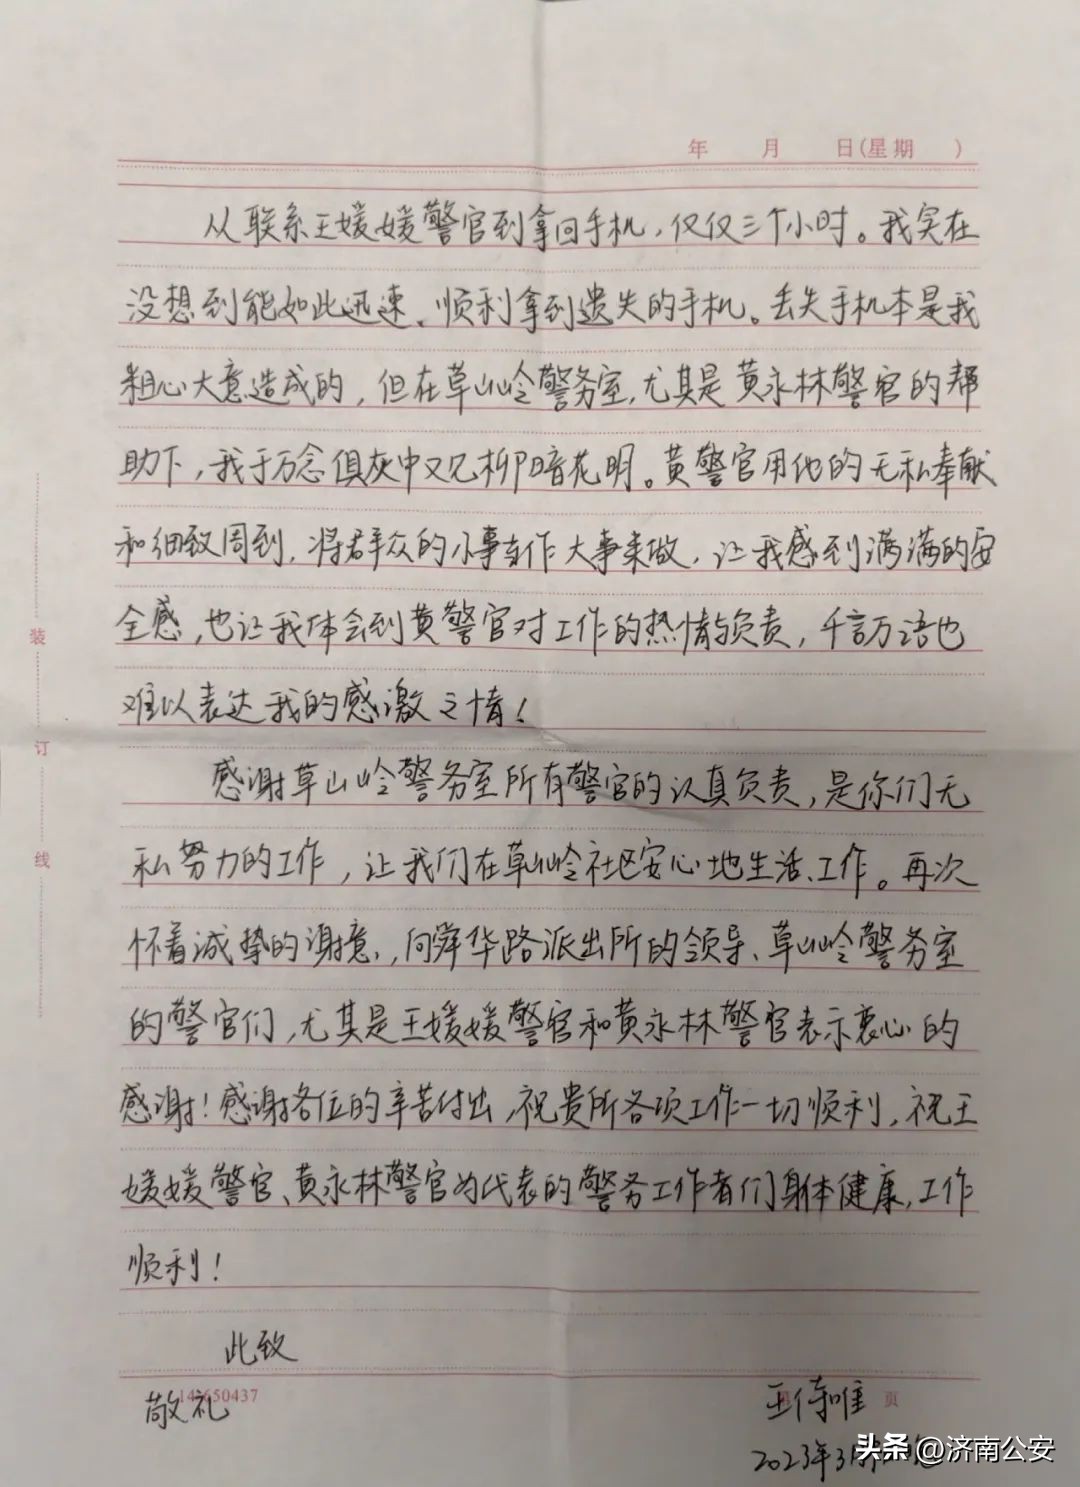 年 月 日(星期 )
从联系王媛媛警官到拿回手机，仅仅三个小时。我实在
没想到能如此迅速、顺利拿到遗失的手机。丢失手机本是我
粗心大意造成的，但在草山岭警务室，尤其是黄永林警官的帮
助下，我于万念俱灰中又见柳暗花明。黄警官用他的无私奉献
和细致周到，将群众的小事当作大事来做，让我感到满满的安
全感，也让我体会到黄警官对工作的热情与负责，千言万语也
难以表达我的感激之情！
感谢草山岭警务室所有警官的认真负责，是你们无
私努力的工作，让我们在草山岭社区安心地生活、工作。再次
怀着诚挚的谢意，向舜华路派出所的领导、草山岭警务室
的警官们，尤其是王媛媛警官和黄永林警官表示衷心的
感谢！感谢各位的辛苦付出，祝贵所各项工作一切顺利，祝王
媛媛警官、黄永林警官为代表的警务工作者们身体健康，工作
顺利！
此致
敬礼
650437
王
页
2023年3月
装
订
线
头条 @济南公安